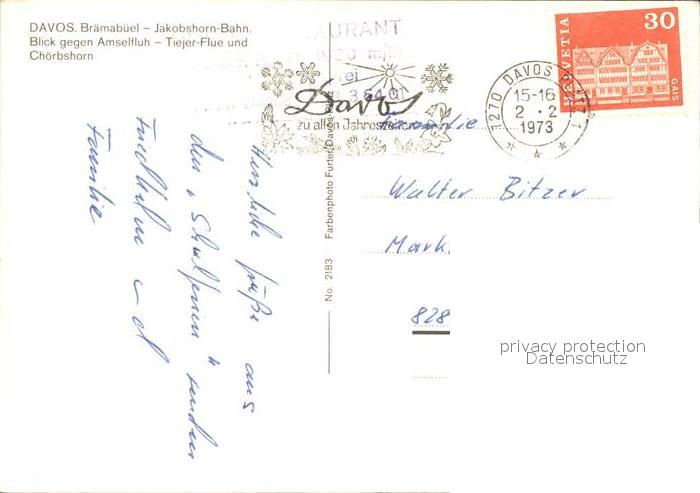 DAVOS. Brämabüel – Jakobshorn-Bahn.
Blick gegen Amselfluh – Tiejer-Flue und
Chörbshorn
Davos
zu allen Jahreszeiten
1270 DAVOS
15-16
2.-2.
1973
HELVETIA
30
GAIS
No. 2183 Farbenphoto Furter, Davos
Herzliche Grüße aus
den „Skiferien" senden
Friedhelm und
Familie
Familie
Walter Bitzer
Mark
828
privacy protection
Datenschutz